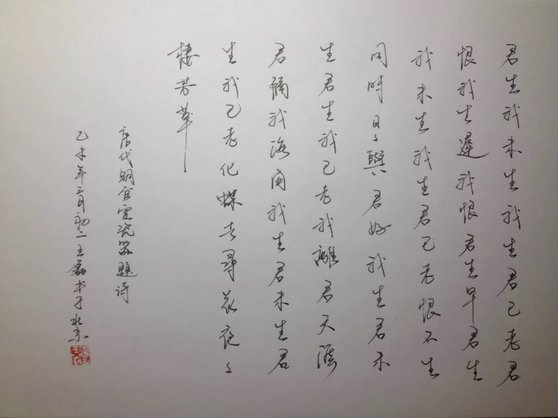 君生我未生我生君已老君
恨我生遲我恨君生早君生
我未生我生君已老恨不生
同時日々與君好我生君未
生君生我已老我離君天涯
君隔我海角我生君未生君
生我已老化蝶去尋花夜々
棲芳草
唐代铜官窑瓷器題诗
乙未年二月初二王磊书于北京